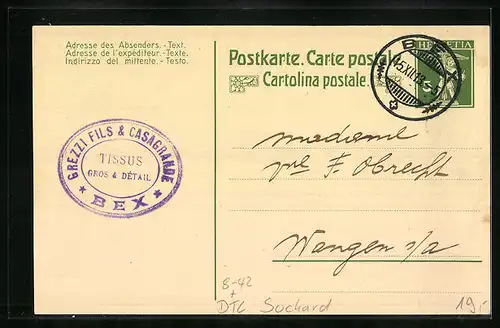 Adresse des Absenders. - Text.
Adresse de l'expéditeur. - Texte.
Indirizzo del mittente. - Testo.
Postkarte. Carte postale.
Cartolina postale.
HELVETIA
BEX
GREZZI FILS & CASAGRANDE
TISSUS
GROS & DÉTAIL
BEX
Madame
F. Obrecht
Wangen s/a
8-42
+
DTC Sochard
19.-